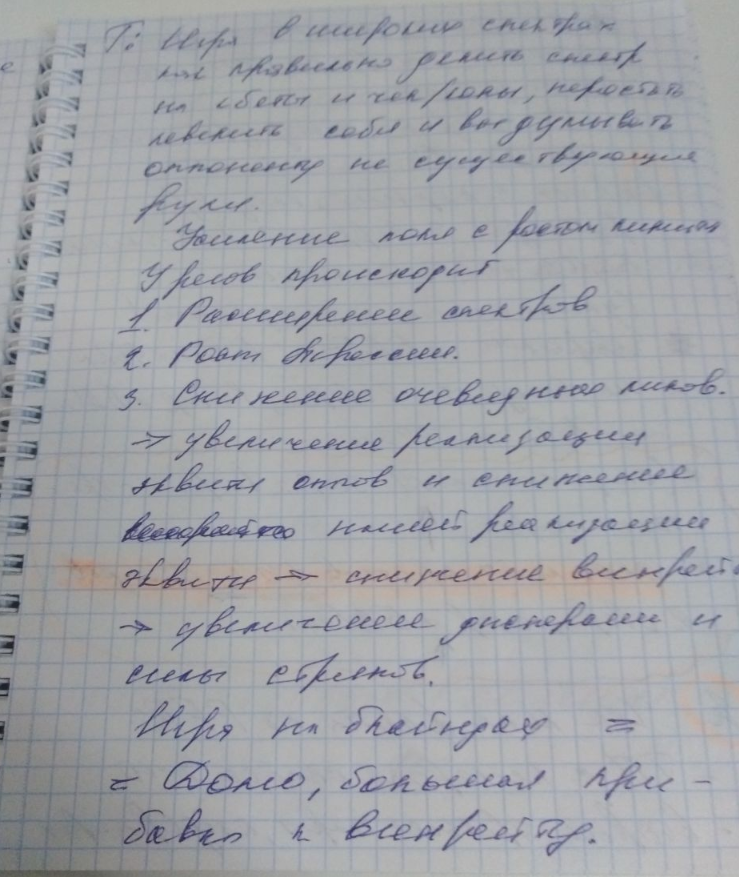 Т: Игра в широких спектрах
как правильно делить спектр
на сбеты и чек/колы, перестать
левелить себя и выдумывать
оппоненту не существующие
руки.
Усиление поля с ростом лимита
У регов происходит
1. Расширение спектров
2. Рост агрессии.
3. Снижение очевидных ликов.
→ увеличение реализации
эквити оппов и снижение
нашей реализации
эквити → снижение винрейта
→ увеличение дисперсии и
силы стриков.
Игра на блайндах =
= Домо, большая при-
бавка к винрейту.